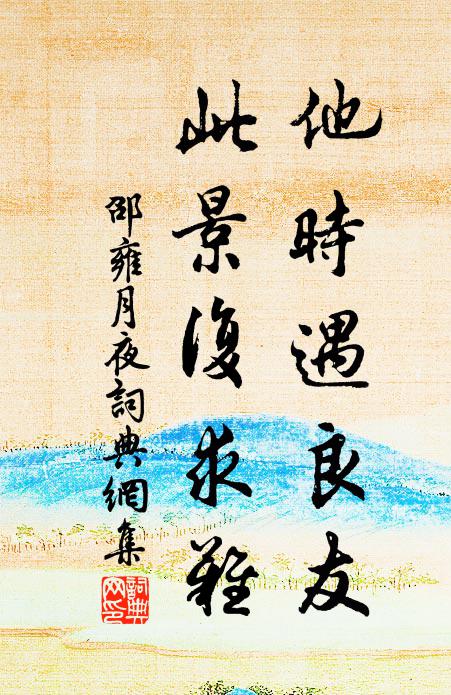 他時遇良友
此景復求難
邵雍月夜詞典網集